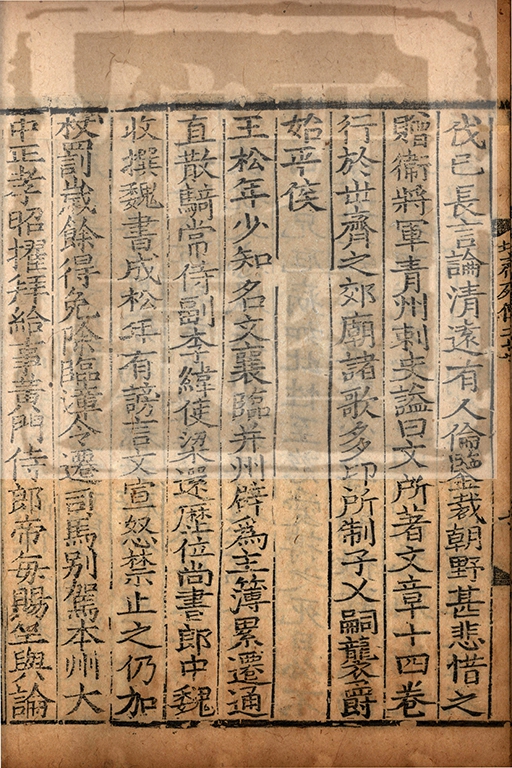 伐已長言論清遠有人倫鑒裁朝野甚悲惜之
贈衞將軍青州刺史謚曰文所著文章十四卷
行於世齊之郊廟諸歌多卬所制子乂嗣襲爵
始平侯
王松年少知名文襄臨并州辟為主簿累遷通
直散騎常侍副李緯使梁還歷位尚書郎中魏
收撰魏書成松年有謗言文宣怒禁止之仍加
杖罰歲餘得免除臨漳令遷司馬别駕本州大
中正孝昭擢拜給事黃門侍郎帝每賜坐與論